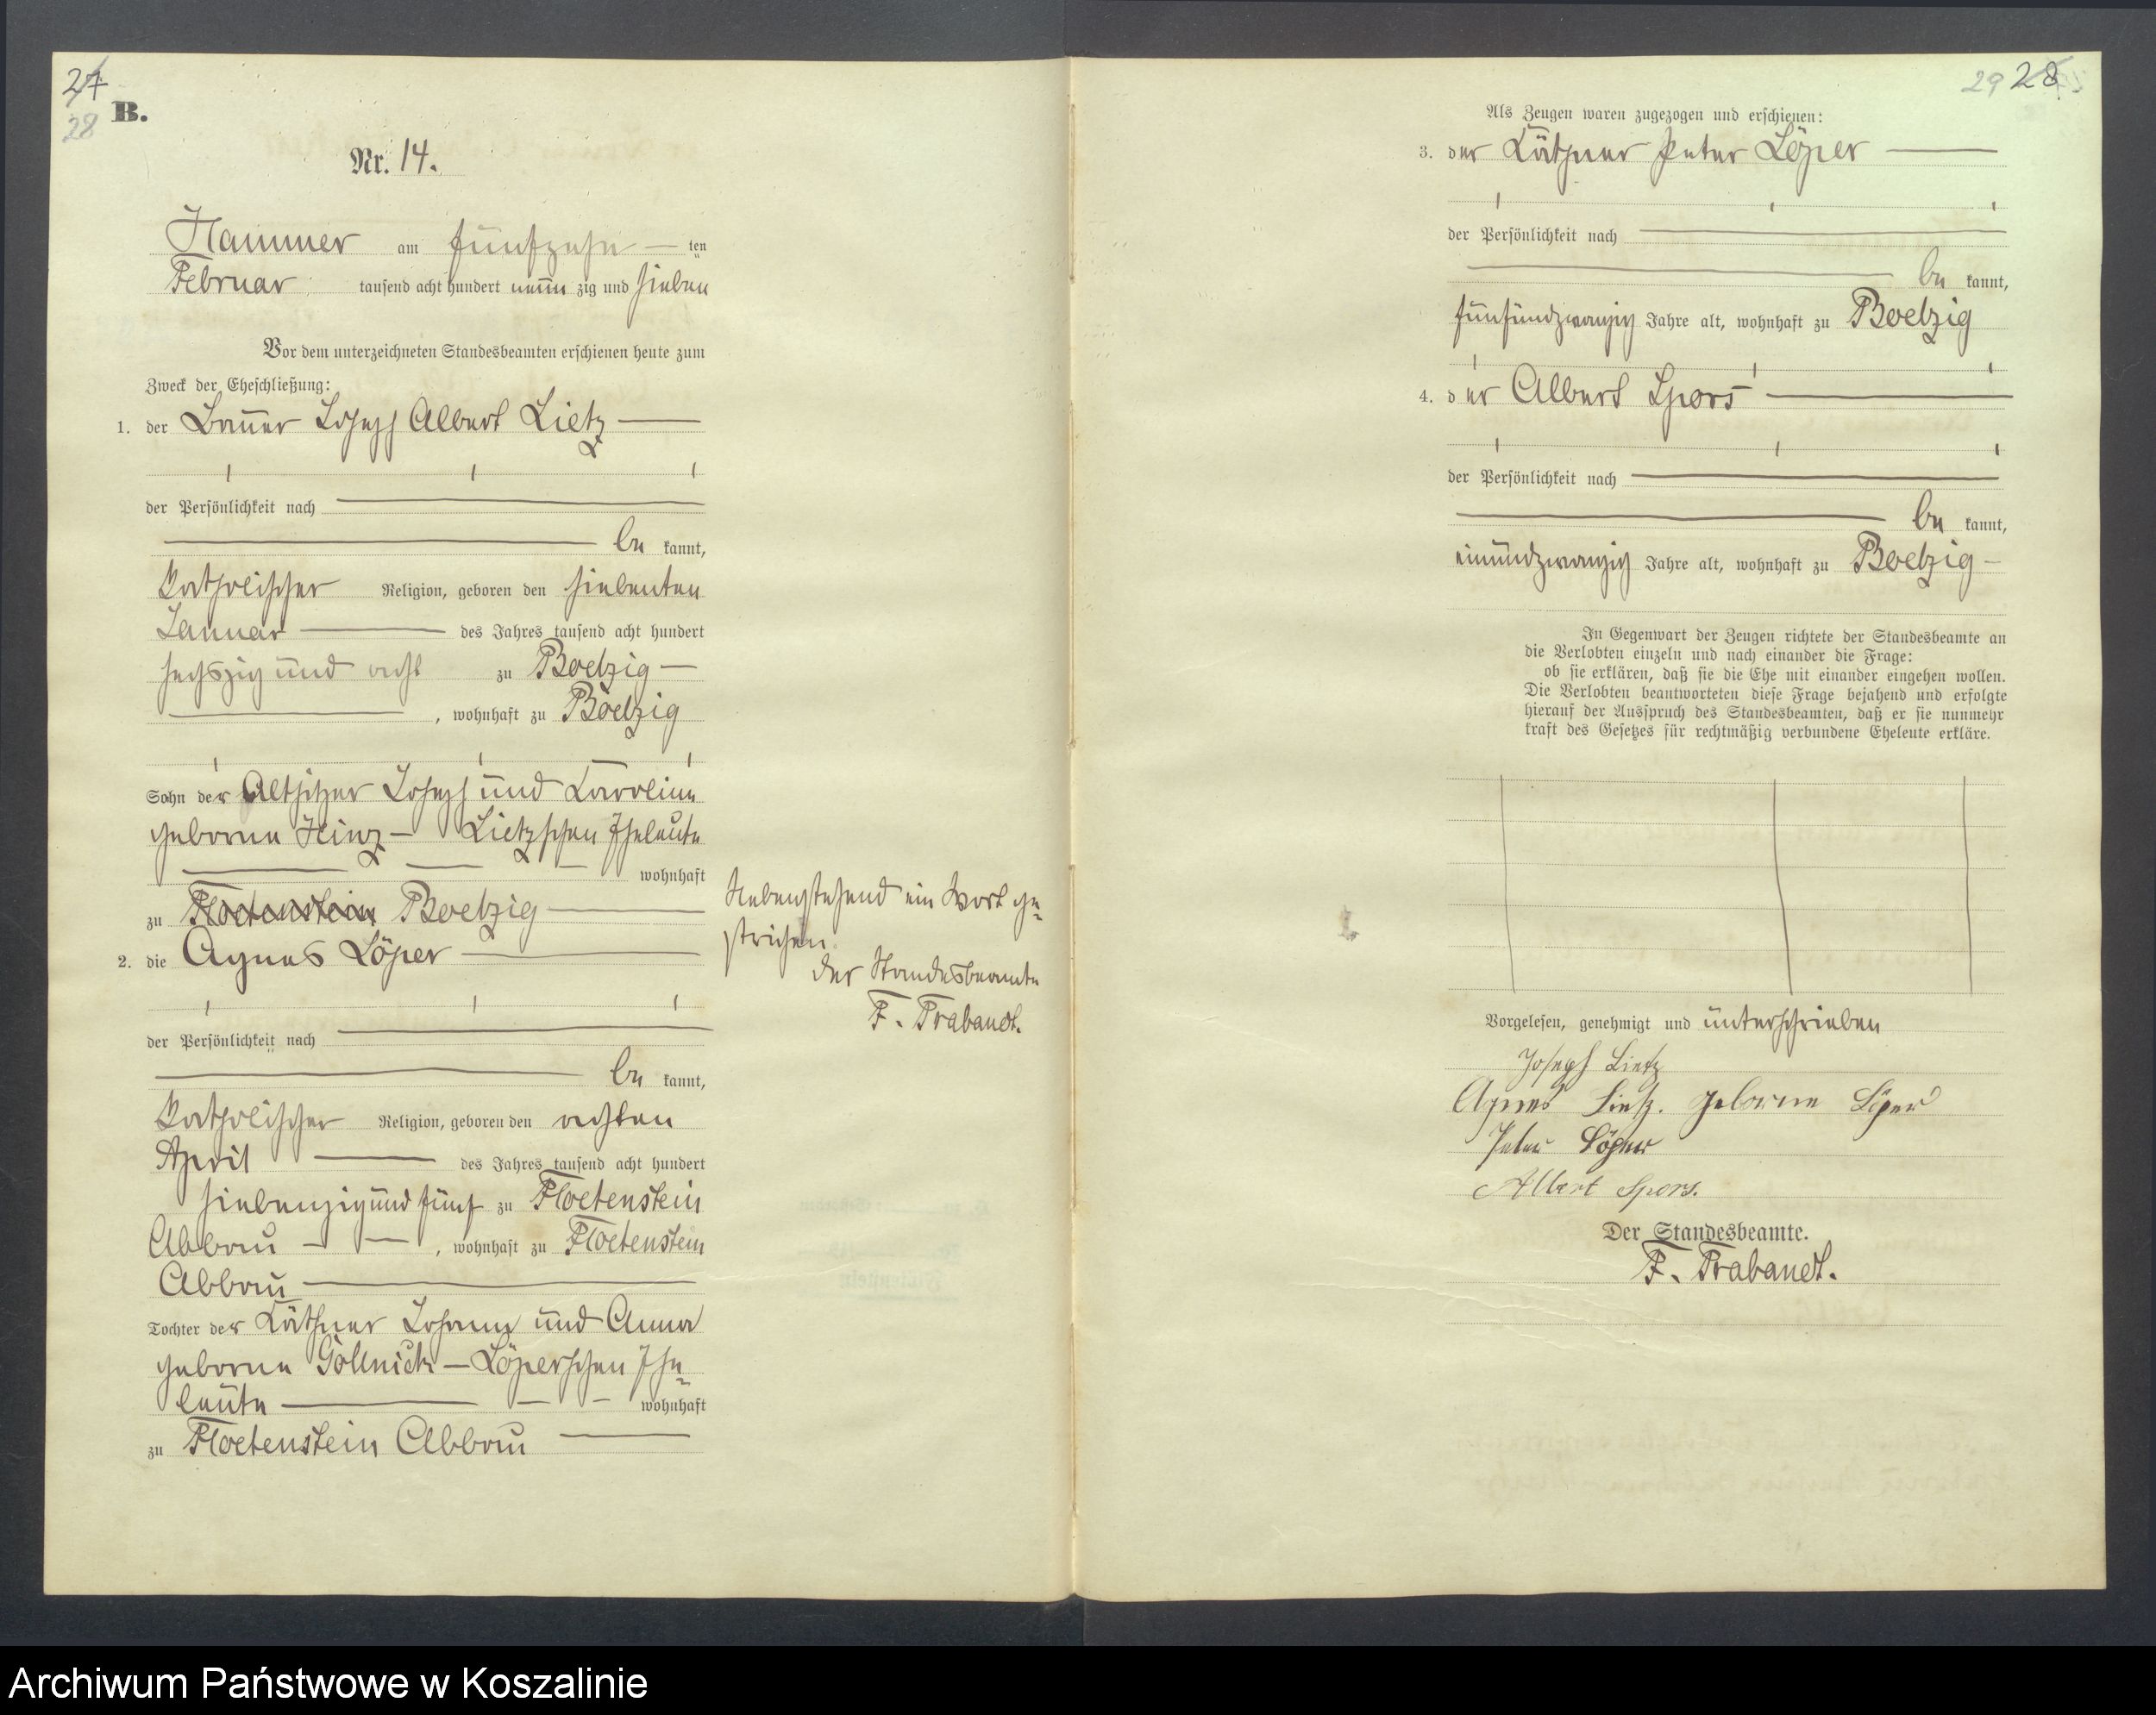 27
28
B.
Nr. 14.
Hammer am fünfzehn ten
Februar tausend acht hundert neun zig und sieben
Vor dem unterzeichneten Standesbeamten erschienen heute zum
Zweck der Eheschließung:
1. der Bauer Joseph Albert Lietz
der Persönlichkeit nach
be kannt,
katholischer Religion, geboren den siebenten
Januar des Jahres tausend acht hundert
sechszig und acht zu Boelzig
, wohnhaft zu Boelzig
Sohn der Altsitzer Joseph und Karoline
geborne Hinz – Lietzschen Eheleute
wohnhaft
zu Floetenstein Boelzig
2. die Agnes Löper
der Persönlichkeit nach
be kannt,
katholischer Religion, geboren den achten
April des Jahres tausend acht hundert
siebenzig und fünf zu Floetenstein
Abbau , wohnhaft zu Floetenstein
Abbau
Tochter der Käthner Johann und Anna
geborne Gollnick – Löperschen Ehe=
leute wohnhaft
zu Floetenstein Abbau
Nebenstehend ein Wort ge=
strichen.
Der Standesbeamte
F. Trabandt.
29 28
Als Zeugen waren zugezogen und erschienen:
3. der Käthner Peter Löper
der Persönlichkeit nach
be kannt,
fünfundzwanzig Jahre alt, wohnhaft zu Boelzig
4. der Albert Spors
der Persönlichkeit nach
be kannt,
einundzwanzig Jahre alt, wohnhaft zu Boelzig
In Gegenwart der Zeugen richtete der Standesbeamte an
die Verlobten einzeln und nach einander die Frage:
ob sie erklären, daß sie die Ehe mit einander eingehen wollen.
Die Verlobten beantworteten diese Frage bejahend und erfolgte
hierauf der Ausspruch des Standesbeamten, daß er sie nunmehr
kraft des Gesetzes für rechtmäßig verbundene Eheleute erkläre.
Vorgelesen, genehmigt und unterschrieben
Joseph Lietz
Agnes Lietz. geborne Löper
Peter Löper
Albert Spors.
Der Standesbeamte.
F. Trabandt.
Archiwum Państwowe w Koszalinie